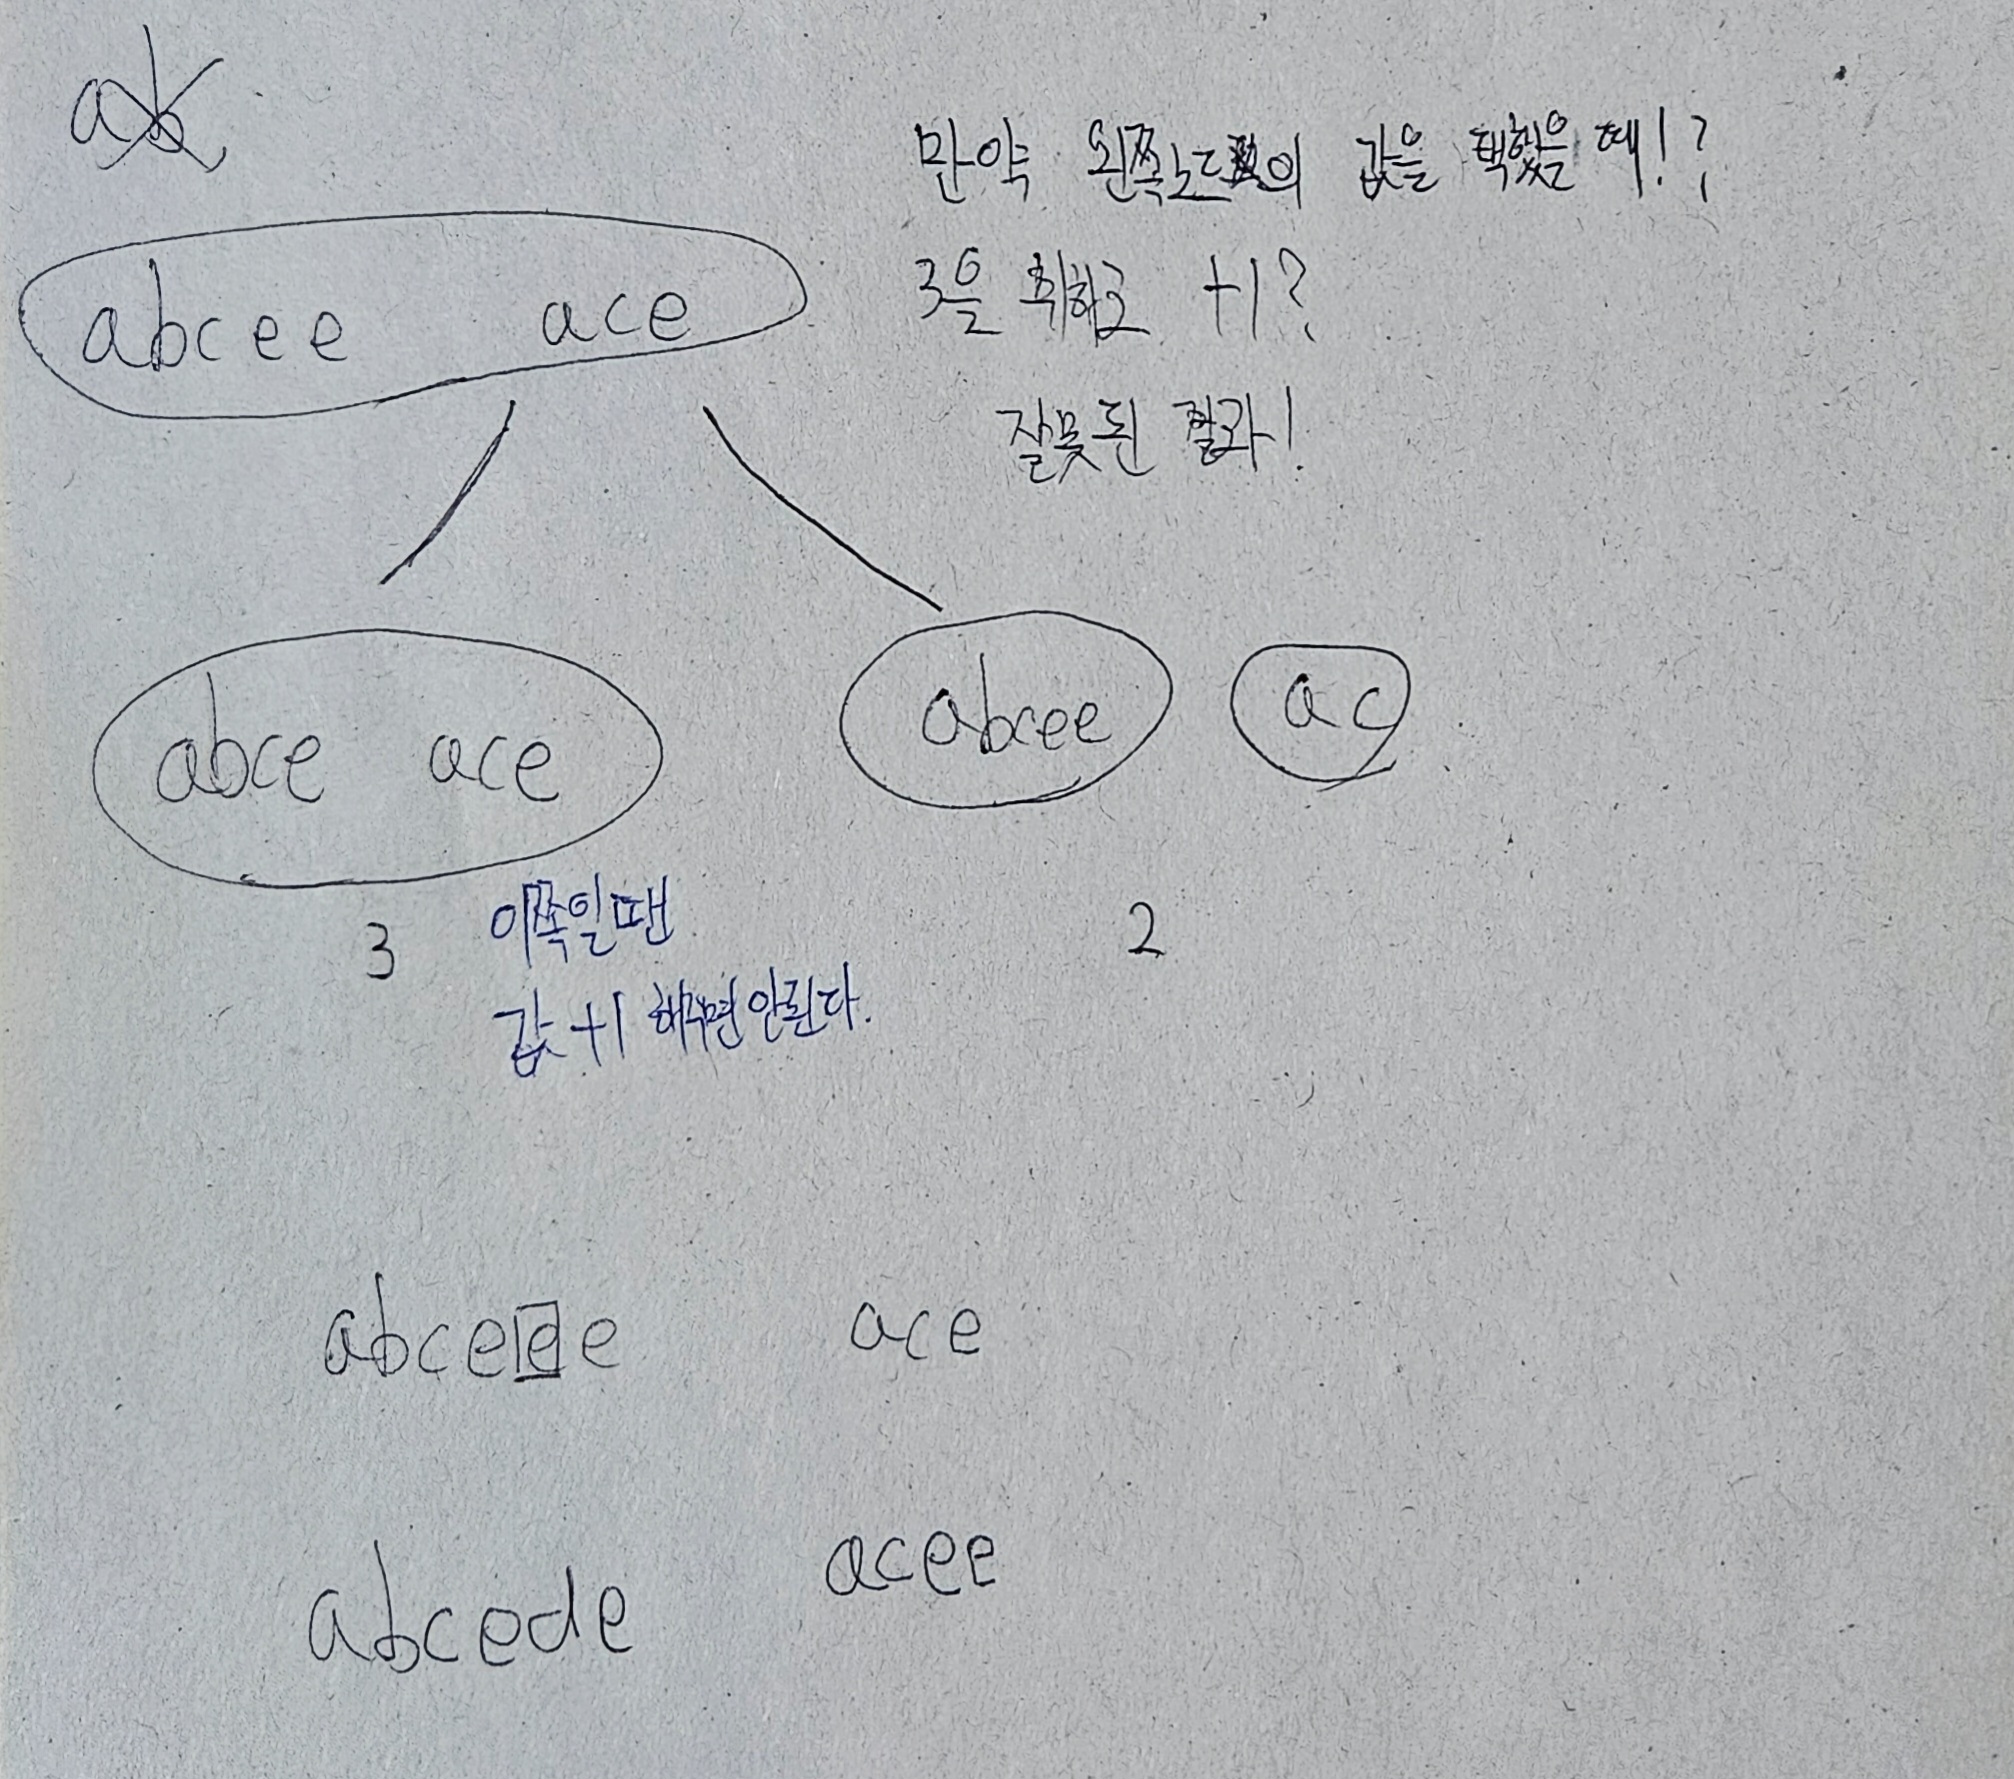 ab
만약 왼쪽노드의 값을 택했을 때!?
abcee ace
3을 취하고 +1?
잘못된 결과!
abce ace
abcee ac
3 이쪽일땐
2
값 +1 해주면 안된다.
abceee ace
abcede acee